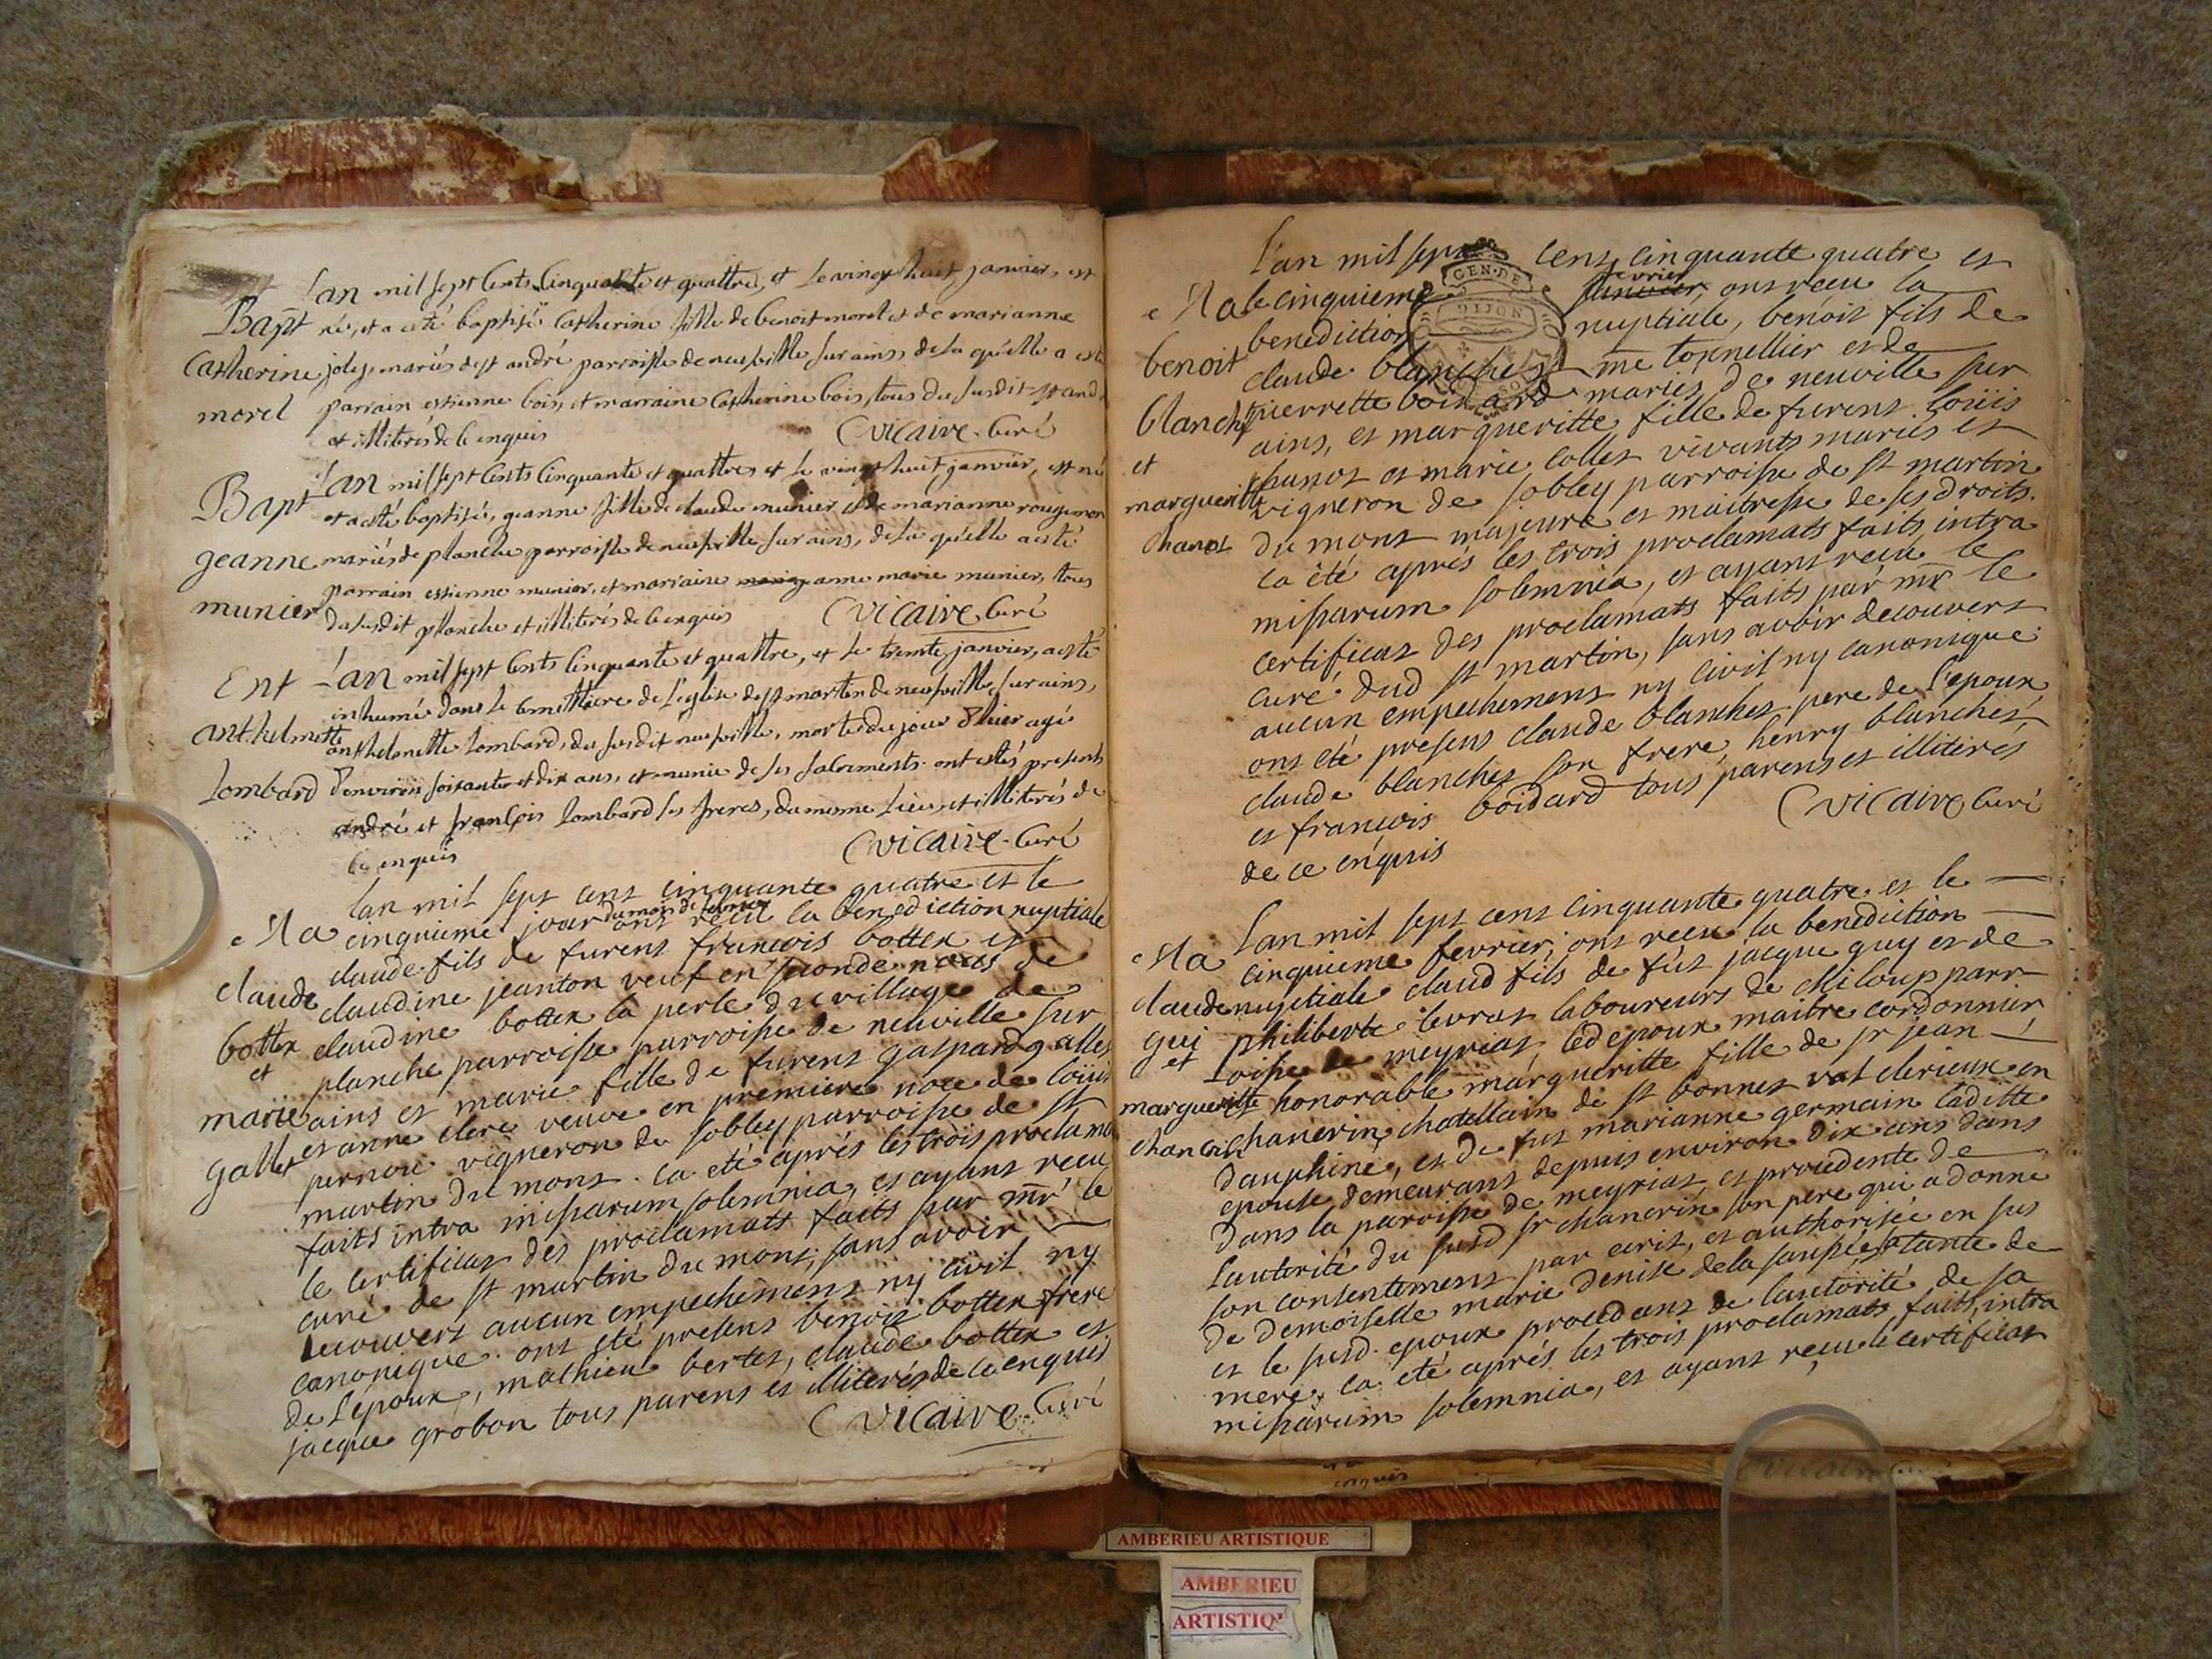 L'an mil sept Cents Cinquante et quattres, et Le vingt huit janvier, est
Bapt née, et a esté baptisée Catherine fille de benoit morel et de marianne
Catherine joly, mariés de st andré parroisse de neufville sur ains, de la qu'elle a esté
morel parrain estienne bois, et marraine Catherine bois, tous du susdit st andré
et illiterés de Ce enquis Vicaire Curé
L'an mil sept Cents Cinquante et quattres et Le vingt huit janvier, est née
Bapt et a esté baptisée, geanne fille de claude munier et de marianne rougemon
geanne mariés de planche parroisse de neufville sur ains, de la qu'elle a esté
munier parrain estienne munier, et marraine anne marie munier, tous
du susdit planche et illiterés de Ce enquis Vicaire Curé
Ent L'an mil sept Cents Cinquante et quattre, et Le trente janvier, a esté
inhumée dans Le Cimettiere de L'eglise de st martin de neufville sur ains,
anthelmette anthelmette Lombard, du susdit neufville, morte du jour d'hier agée
Lombard d'environ soixante et dix ans, et munie de ses sacrements. ont estés presents
andré et françois Lombard ses freres, du mesme Lieu et illiterés de
Ce enquis Vicaire Curé
L'an mil sept cens cinquante quatre et le
Ma cinquieme jour du mois de fevrier ont reçu la benediction nuptiale
claude claude fils de furent françois bottex et
claudine jeanton veuf en seconde noces de
bottex claudine bottex la perle du village de
et planche parroisse parroisse de neuville sur
marie ains et marie fille de furent gaspard gallet
gallet et anne clerc veuve en premiere noce de Loüis
pernoie vigneron du sobley parroisse de st
martin du mont. Ca eté aprés les trois proclamats
faits intra missarum solemnia, et ayant reçu
le certificat des proclamats faits par mr le
curé de st martin du mont, sans avoir
decouvert aucun empechement ny civil ny
canonique. ont eté presens benoit bottex frere
de L'epoux, mathieu bertet, claude bottex et
jacque grobon tous parens et illiterés de ce enquis
Vicaire Curé
L'an mil sept cens cinquante quatre et
Ma le cinquieme fevrier janvier, ont reçeu la
benoit benediction nuptiale, benoit fils de
claude blanchet me tonnellier et de
blanchet pierrette boidard mariés de neuville sur
et ains, et margueritte fille de furent Loüis
chanot et marie collet vivants mariés et
margueritte vigneron de sobley parroisse de st martin
chanot du mont majeure et maitresse de ses droits.
Ca été aprés les trois proclamats faits intra
missarum solemnia, et ayant reçu le
certificat des proclamats faits par mr le
curé dud st martin, sans avoir decouvert
aucun empechement ny civil ny canonique.
ont eté presens claude blanchet pere de l'epoux,
claude blanchet son frere, henry blanchet,
et françois boidard tous parens et illiterés
de ce enquis Vicaire Curé
L'an mil sept cens cinquante quatre et le
Ma cinquieme fevrier, ont reçeu la benediction
claude nuptiale claud fils de fût jacque guy et de
gui philiberte levrat laboureurs de chiloup parr
et oisse de meyriat, led epoux maitre cordonnier
margueritte et honorable margueritte fille de sr jean
chancrin chancrin, chatellain de st bonnet val clerieux en
Dauphiné, et de fut marianne germain Laditte
epouse demeurant depuis environ dix ans dans
dans la paroisse de meyriat et procedente de
L'autorité du susd sr chancrin son pere qui a donné
son consentement par ecrit, et authorisée en sus
de demoiselle marie denise de la saupée, sa tante de
et le susd. epoux procedant de l'autorité de sa
mere, Ca eté aprés les trois proclamats faits intra
missarum solemnia, et ayant reçu le certificat
GEN·DE
DIJON
enquis
AMBERIEU ARTISTIQUE
AMBERIEU
ARTISTIQ